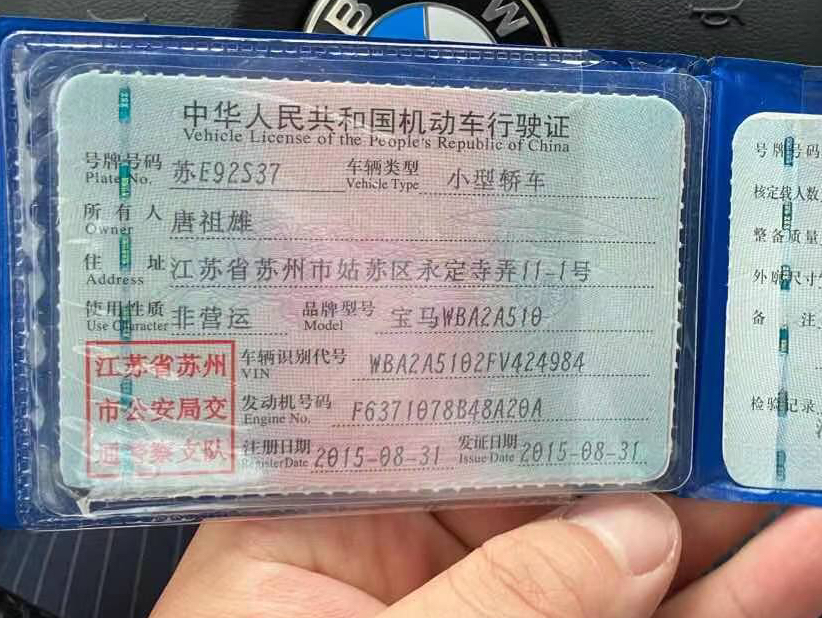 B W
中华人民共和国机动车行驶证
Vehicle License of the People's Republic of China
号牌号码 苏E92S37 车辆类型 小型轿车
Plate No. Vehicle Type
所有人 唐祖雄
Owner
住址 江苏省苏州市姑苏区永定寺弄11-1号
Address
使用性质 非营运 品牌型号 宝马WBA2A510
Use Character Model
江苏省苏州 车辆识别代号 WBA2A5102FV424984
VIN
市公安局交 发动机号码 F6371078B48A20A
Engine No.
通警察支队 注册日期 2015-08-31 发证日期 2015-08-31
Register Date Issue Date
号牌号码
核定载人数
整备质量
外廓尺寸
备注
检验记录